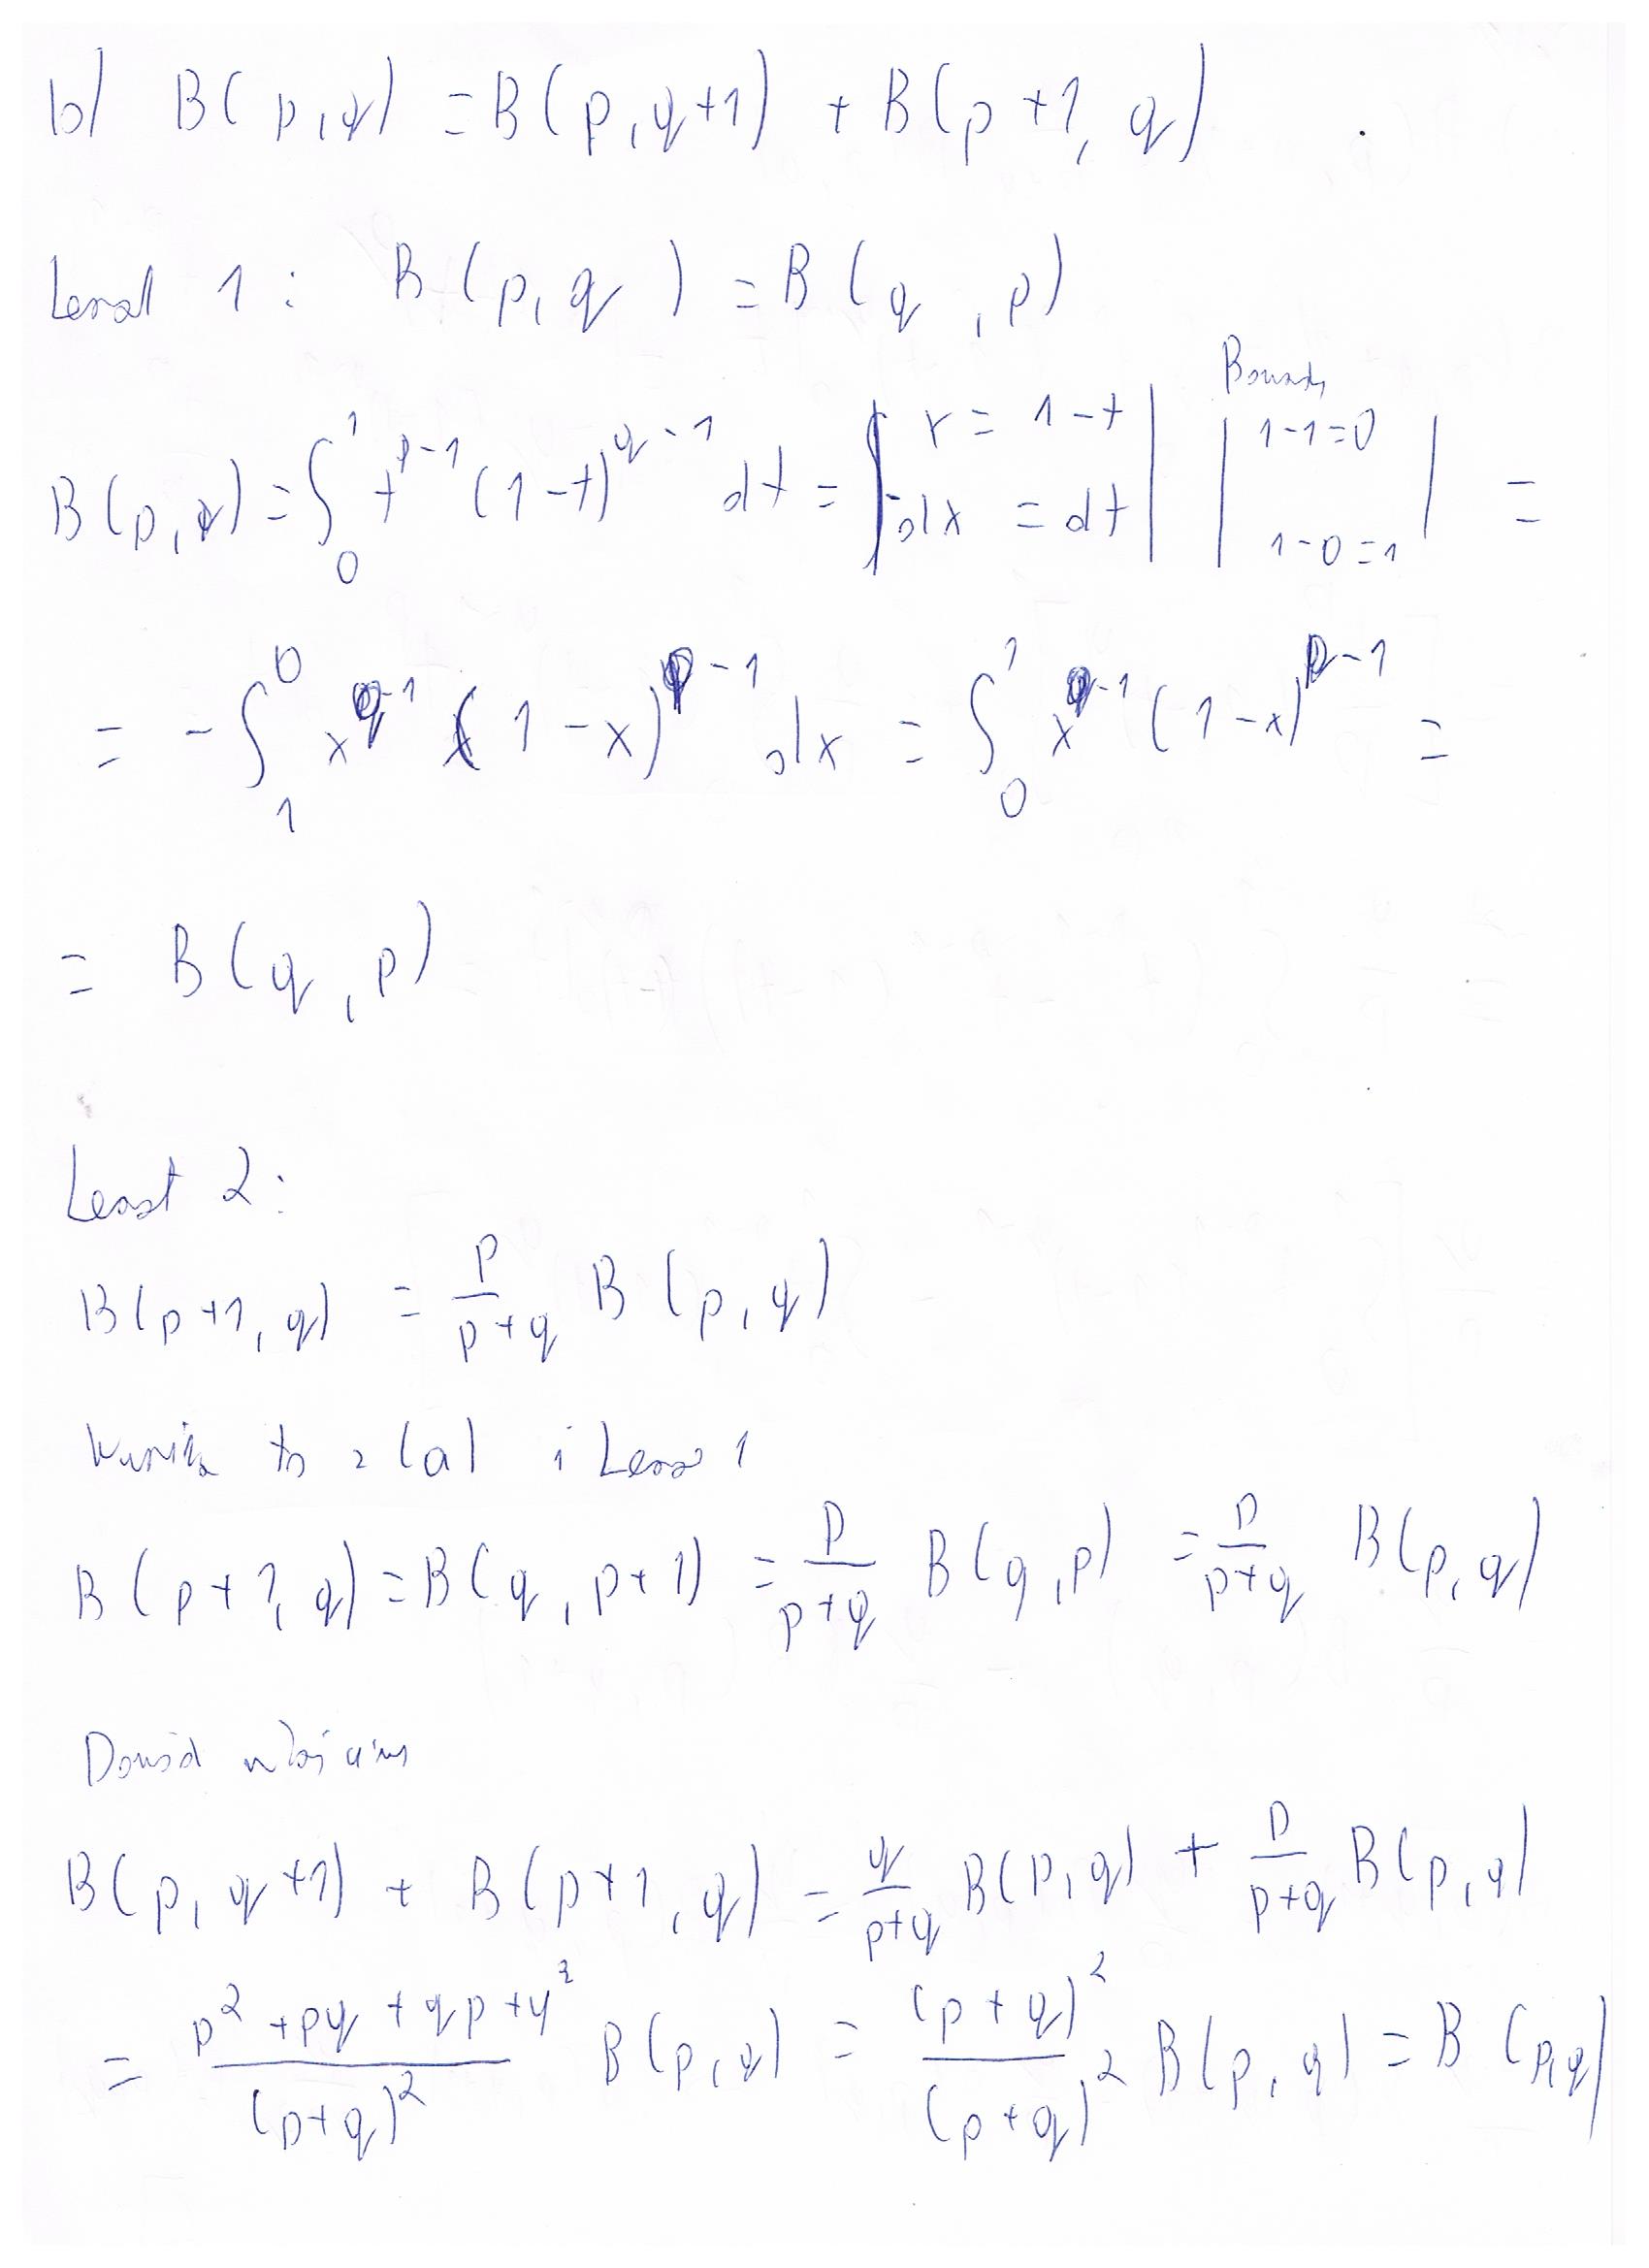 b) B(p,q) = B(p,q+1) + B(p+1,q)
1: B(p,q) = B(q,p)
Bounds
B(p,q) = ∫₀¹ t^{p-1} (1-t)^{q-1} dt = | x = 1-t, -dx = dt | | 1-1=0, 1-0=1 | =
= - ∫₁⁰ x^{q-1} (1-x)^{p-1} dx = ∫₀¹ x^{q-1} (1-x)^{p-1} =
= B(q,p)
2:
B(p+1,q) = \frac{p}{p+q} B(p,q)
to z (a) i 1
B(p+1,q) = B(q,p+1) = \frac{p}{p+q} B(q,p) = \frac{p}{p+q} B(p,q)
Dowód
B(p,q+1) + B(p+1,q) = \frac{q}{p+q} B(p,q) + \frac{p}{p+q} B(p,q)
= \frac{p²+pq+qp+q²}{(p+q)²} B(p,q) = \frac{(p+q)²}{(p+q)²} B(p,q) = B(p,q)